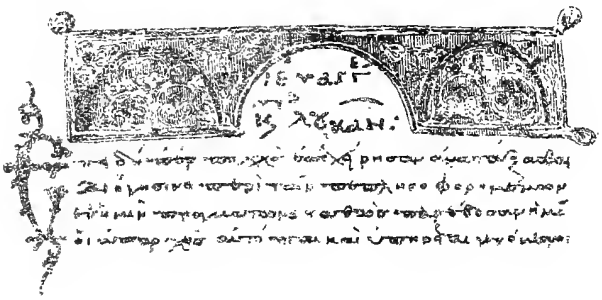 εὐαγγε
κ λουκαν:
Ἐπειδήπερ πολλοὶ ἐπεχείρησαν ἀνατάξασθαι
διήγησιν περὶ τῶν πεπληροφορημένων
ἐν ἡμῖν πραγμάτων καθὼς παρέδοσαν ἡμῖν
οἱ ἀπαρχῆς αὐτόπται καὶ ὑπηρέται γενόμενοι